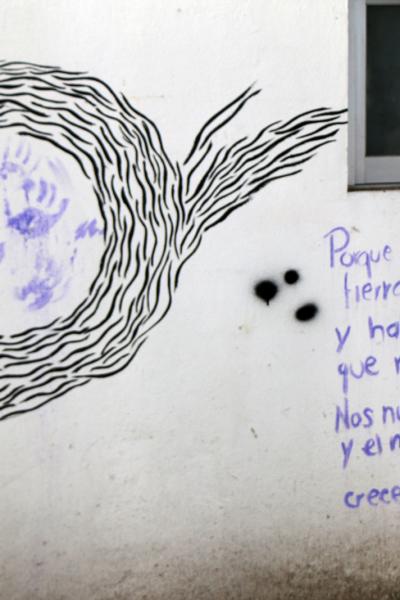 Porque
tierra
y ha
que
Nos nu
y el
crece